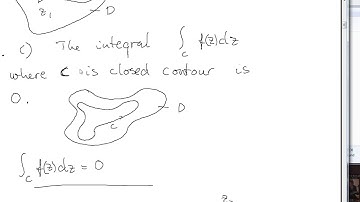 z₁ D
. c) The integral ∫_C f(z)dz
where C is closed contour is
0.
D
C
∫_C f(z)dz = 0